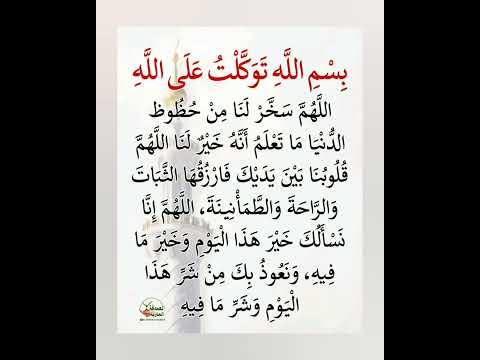 بِسْمِ اللَّهِ تَوَكَّلْتُ عَلَى اللَّهِ
اللَّهُمَّ سَخَّرْ لَنَا مِنْ حُظُوظ
الدُّنْيَا مَا تَعْلَمُ أَنَّهُ خَيْرٌ لَنَا اللَّهُمَّ
قُلُوبُنَا بَيْنَ يَدَيْكَ فَارْزُقْهَا الثَّبَاتَ
وَالرَّاحَةَ وَالطَّمَأْنِينَةَ، اللَّهُمَّ إِنَّا
نَسْأَلُكَ خَيْرَ هَذَا الْيَوْمِ وَخَيْرَ مَا
فِيهِ، وَنَعُوذُ بِكَ مِنْ شَرِّ هَذَا
الْيَوْمِ وَشَرِّ مَا فِيهِ